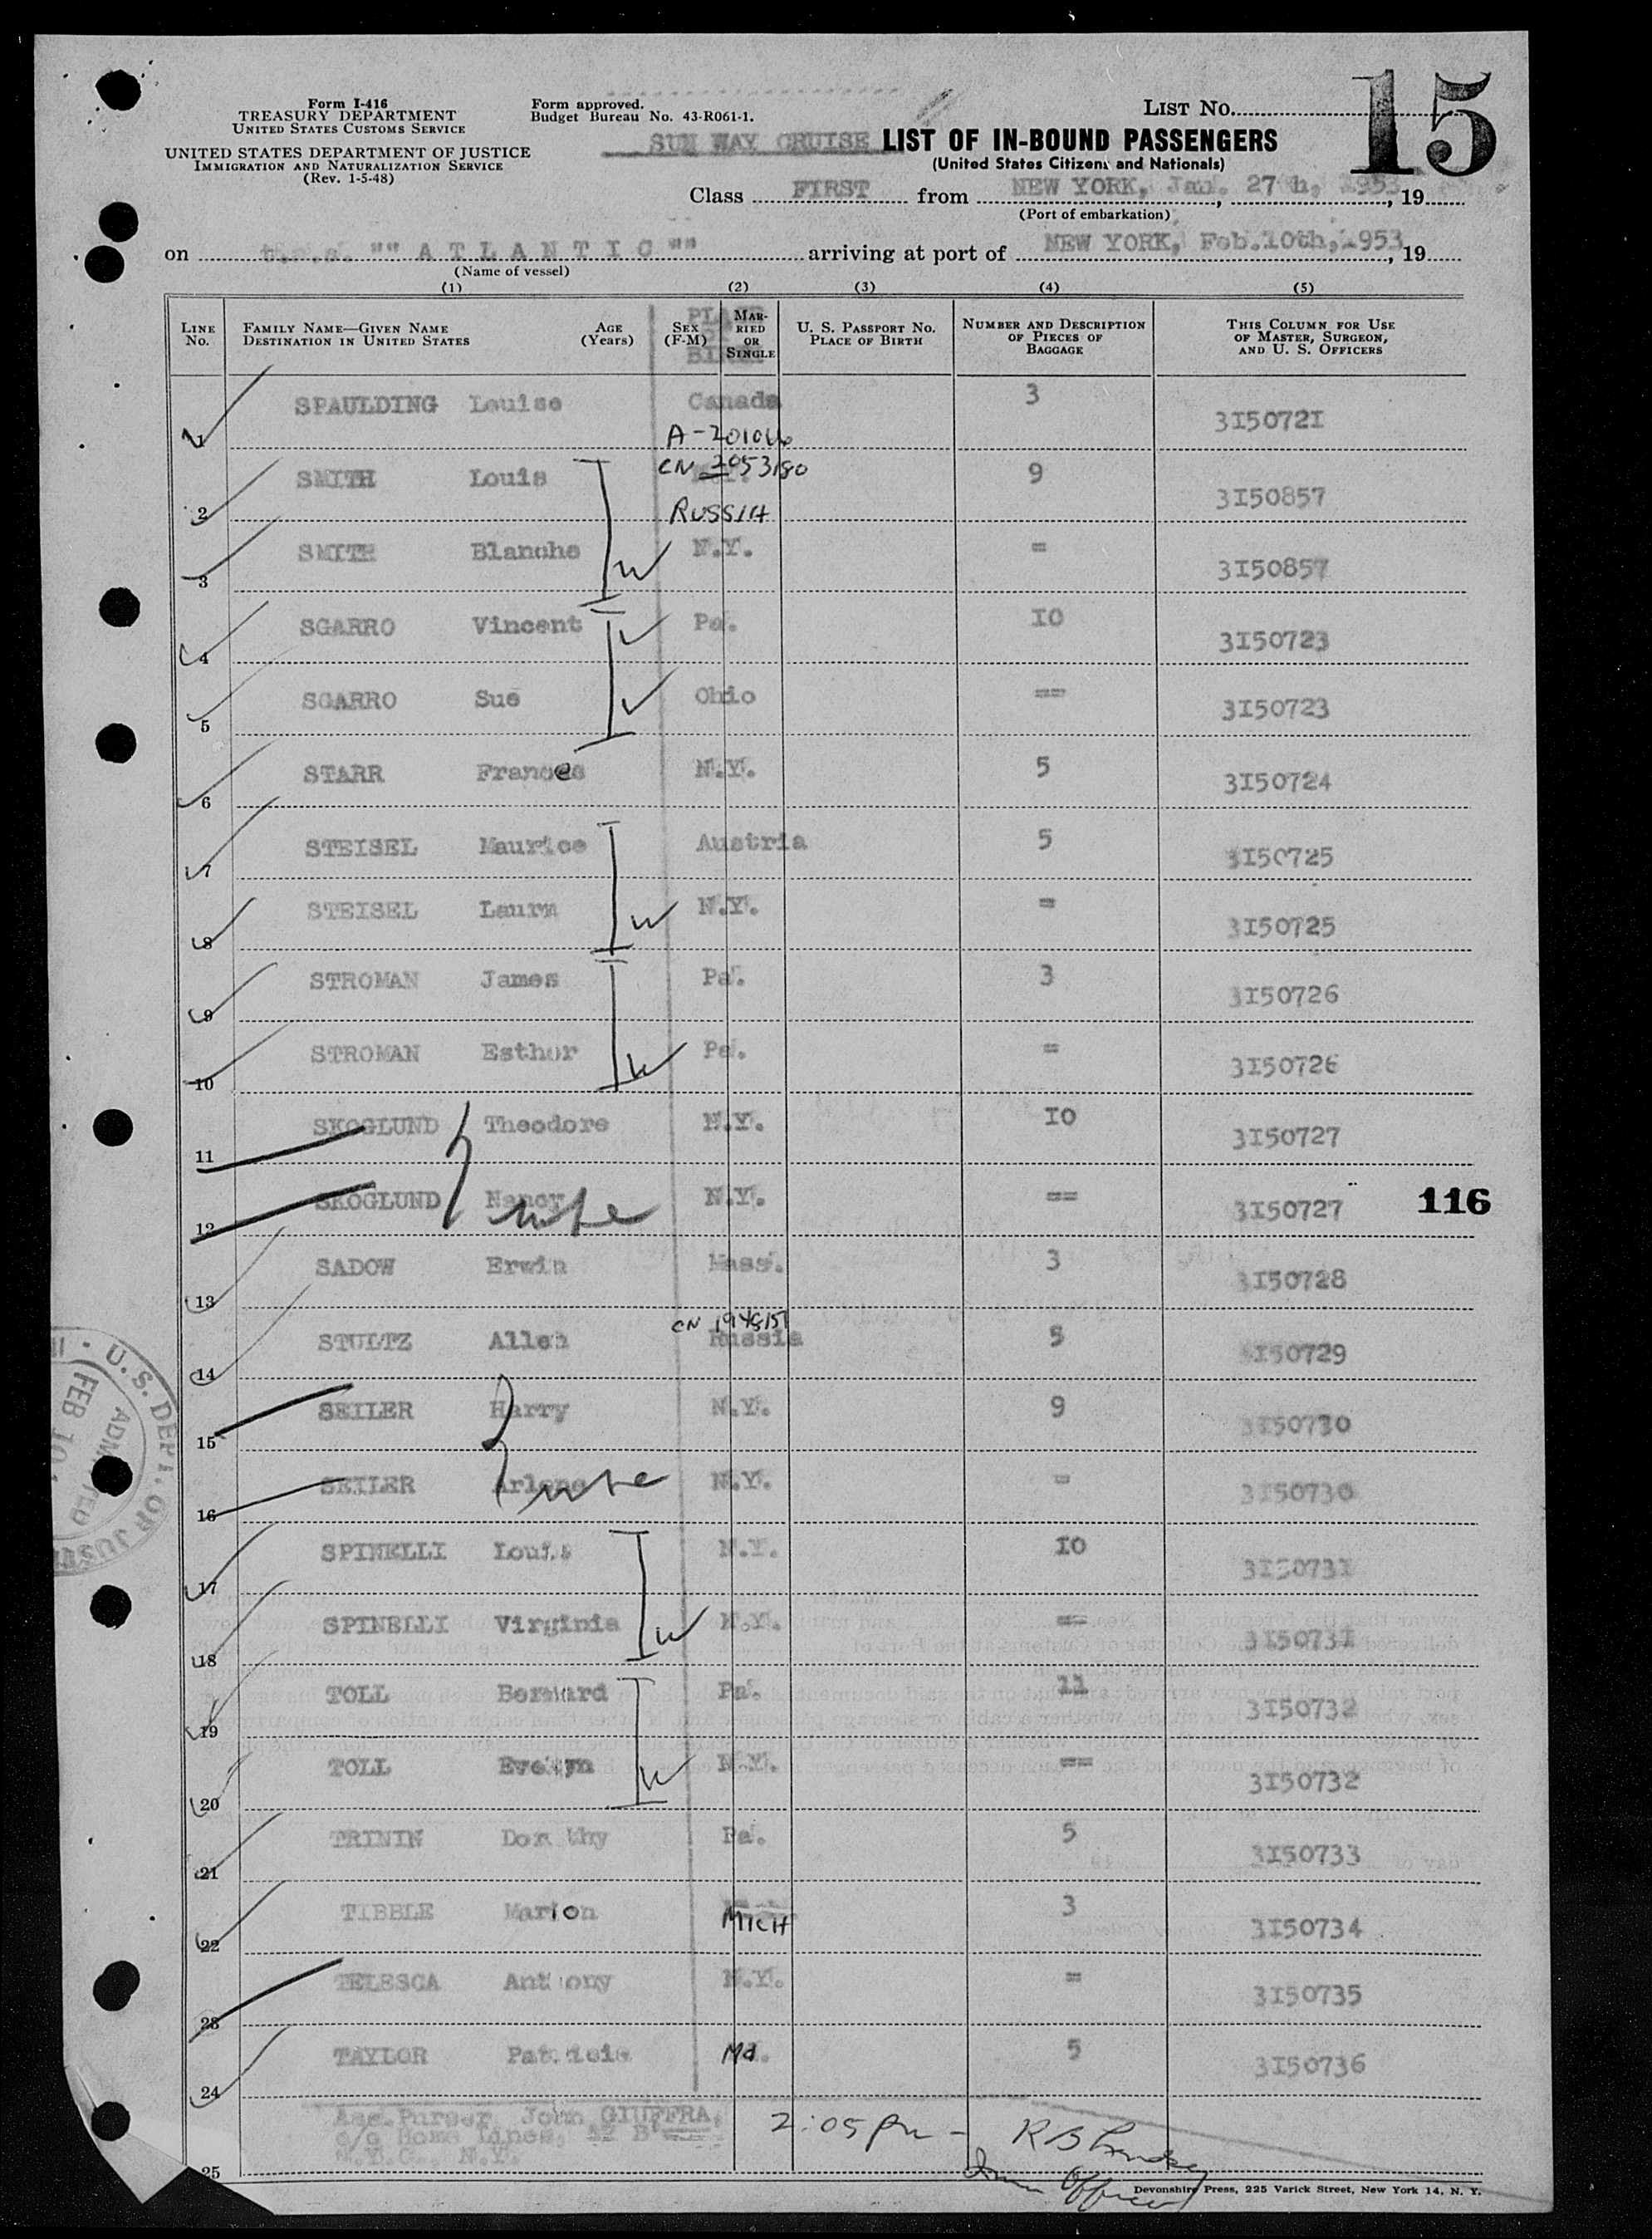 Form I-416
TREASURY DEPARTMENT
UNITED STATES CUSTOMS SERVICE
UNITED STATES DEPARTMENT OF JUSTICE
IMMIGRATION AND NATURALIZATION SERVICE
(Rev. 1-5-48)
Form approved.
Budget Bureau No. 43-R061-1.
LIST No. 15
SUN WAY CRUISE LIST OF IN-BOUND PASSENGERS
(United States Citizens and Nationals)
Class FIRST from NEW YORK, Jan. 27th, 1953, 19
(Port of embarkation)
on t.s.s. "" A T L A N T I C "" arriving at port of NEW YORK, Feb.10th,1953, 19
(Name of vessel)
(1) (2) (3) (4) (5)
LINE No. FAMILY NAME—GIVEN NAME DESTINATION IN UNITED STATES AGE (Years) SEX (F-M) MARRIED OR SINGLE U. S. PASSPORT No. PLACE OF BIRTH NUMBER AND DESCRIPTION OF PIECES OF BAGGAGE THIS COLUMN FOR USE OF MASTER, SURGEON, AND U. S. OFFICERS
1 SPAULDING Louise Canada 3 3I5072I
A-20104
CN 2053180
2 SMITH Louis RUSSIA 9 3I50857
3 SMITH Blanche W N.Y. = 3I50857
4 SGARRO Vincent Pa. IO 3I50723
5 SGARRO Sue Ohio == 3I50723
6 STARR Frances N.Y. 5 3I50724
7 STEISEL Maurice Austria 5 3I50725
8 STEISEL Laura W N.Y. = 3I50725
9 STROMAN James Pa. 3 3I50726
10 STROMAN Esther W Pa. = 3I50726
11 SKOGLUND Theodore N.Y. IO 3I50727
12 SKOGLUND Nancy wife N.Y. == 3I50727
116
13 SADOW Erwin Mass. 3 3I50728
CN
14 STULTZ Allen Russia 5 3I50729
15 SEILER Harry N.Y. 9 3I50730
16 SEILER Arlene wife N.Y. = 3I50730
17 SPINELLI Louis N.Y. IO 3I5073I
18 SPINELLI Virginia W N.Y. == 3I5073I
19 TOLL Bernard Pa. 11 3I50732
20 TOLL Evelyn W N.Y. == 3I50732
21 TRININ Dorothy Pa. 5 3I50733
22 TIBBLE Marion MICH 3 3I50734
23 TELESCA Anthony N.Y. = 3I50735
24 TAYLOR Patricia Md. 5 3I50736
Ass.Purser John GIUFFRA,
c/o Home Lines,
N.Y.C., N.Y.
25
2:05 pm -
Imm Officer
Devonshire Press, 225 Varick Street, New York 14, N. Y.
U.S. DEPT. OF JUSTICE
ADMITTED
FEB 10